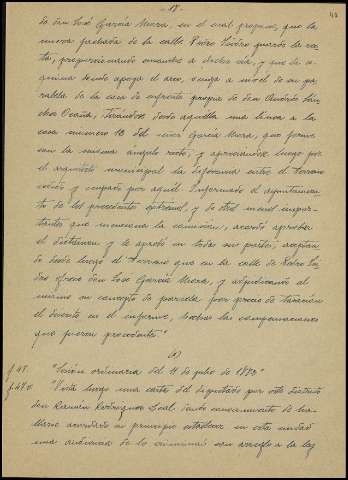 - 18 -
do don José García Mora, en el cual propone, que la
nueva fachada de la calle Pedro Isidro guarde la recta,
ta, proporcionando ensanche a dicha vía, y que la
esquina donde apoya el arco, venga a nivel de su pa-
ralela de la casa de enfrente propia de don Andrés Sán-
chez Ocaña, tirándose desde aquella una línea a la
casa número 18 del García Mora, que forme
con la misma ángulo recto, y apreciándose luego por
el arquitecto municipal la diferencia entre el terreno
cedido y ocupado por aquél. Informado el ayuntamien-
to de los precedentes extremos, y de otros menos impor-
tantes que menciona la comisión, acordó aprobar
el dictamen y lo aprobó en todas sus partes, aceptan-
do desde luego el terreno que en la calle de Pedro Isi-
dro ofrece don José García Mora, y adjudicando al
mismo en concepto de parcela por precio de tasación
el descrito en el informe, hechas las compensaciones
que fueran procedentes."
(a)
f. 47. "Sesión ordinaria del 11 de julio de 1882"
f. 47 v. "Vista luego una carta del diputado por este distrito
don Ramón Rodríguez Leal, dando conocimiento de ha-
llarse acordado en principio establecer en esta ciudad
una audiencia de lo criminal con arreglo a la ley